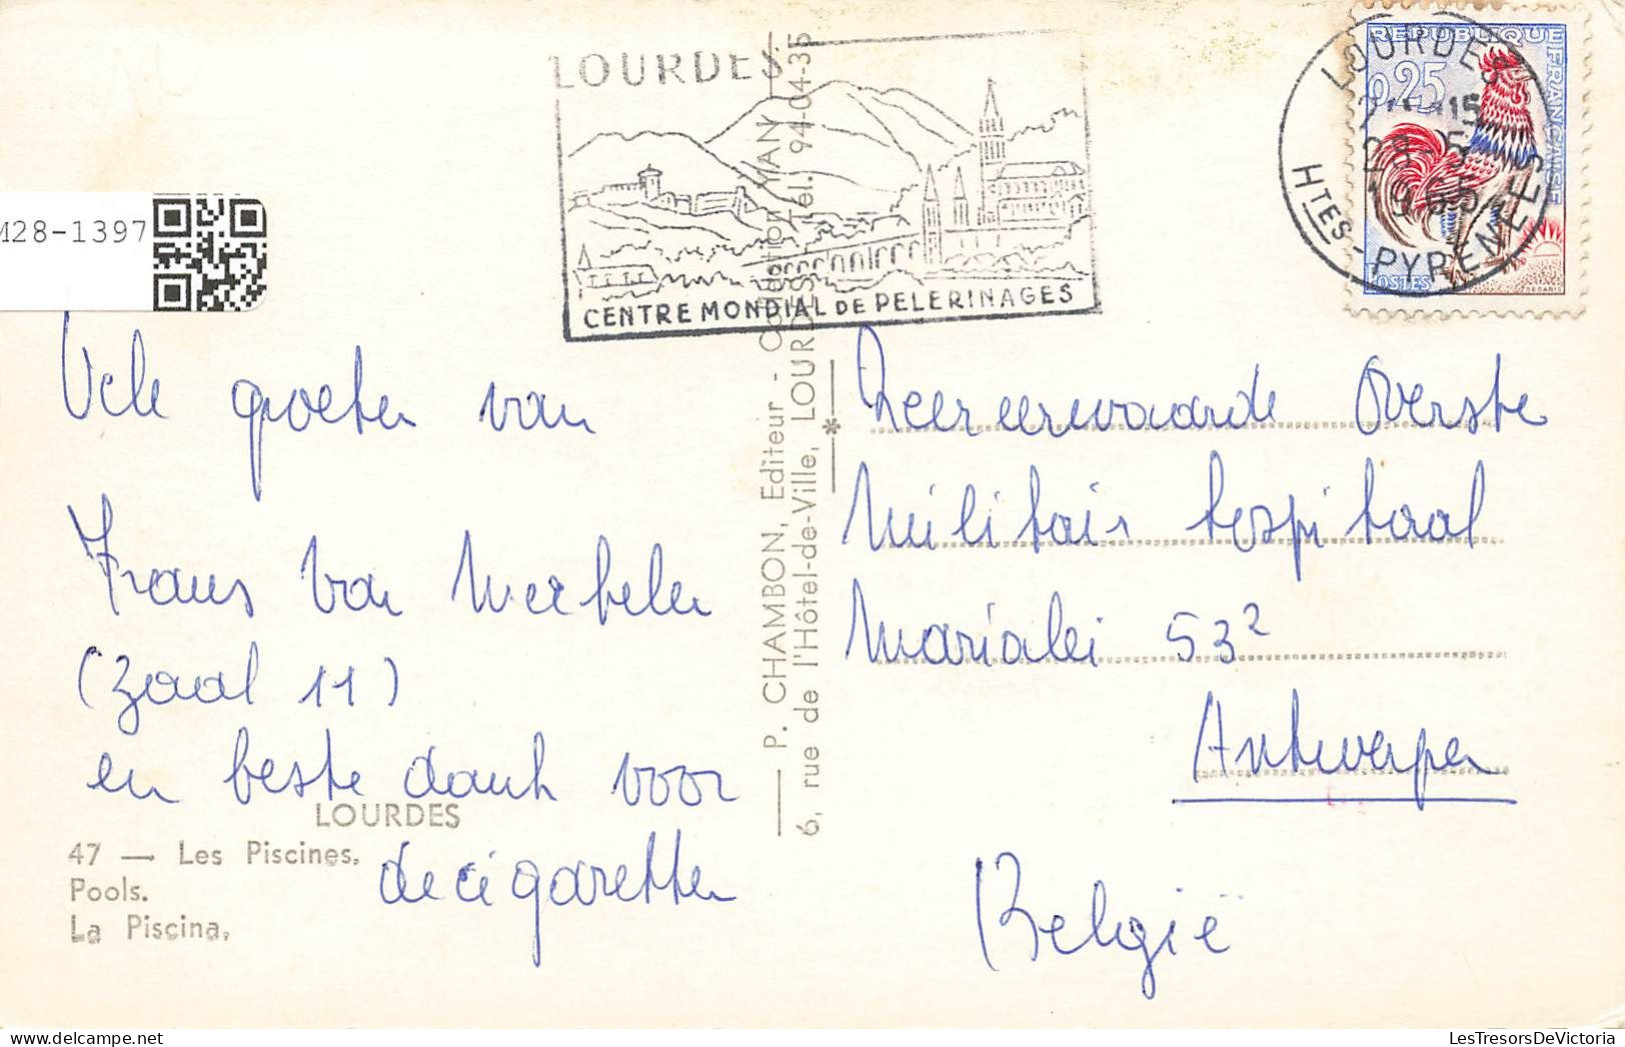 LOURDES
CENTRE MONDIAL DE PELERINAGES
REPUBLIQUE FRANÇAISE
0,25
POSTES
LOURDES
28-5
1965
HTES-PYRENEES
M28-1397
Vele groeten van
Frans Van Werbelen
(Zaal 11)
en beste dank voor
de cigaretten
LOURDES
47 — Les Piscines.
Pools.
La Piscina.
P. CHAMBON, Editeur - Collection MAN
6, rue de l'Hôtel-de-Ville, LOURDES Tél. 94-04-35
Zeereerwaarde Overste
Militair hospitaal
Marialei 53²
Antwerpen
België
LesTresorsDeVictoria